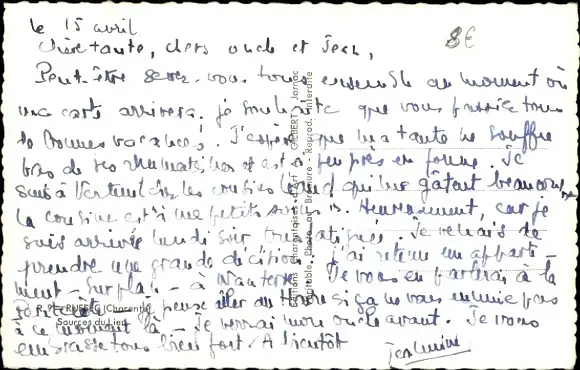 le 15 avril
8€
Chère tante, chers oncle et Jean,
Peut-être serez-vous tous ensemble au moment où
ma carte arrivera. je souhaite que vous passiez tous
de bonnes vacances. J'espère que ma tante ne souffre
pas de ses rhumatismes et est à peu près en forme. Je
suis à Verteuil chez les cousins qui me gâtent beaucoup,
la cousine est aux petits soins. Heureusement, car je
suis arrivée lundi soir très fatiguée. Je venais de
prendre une grande décision. j'ai retenu un apparte-
ment - sur plan - à Nanterre. Je vous en parlerai à la
Pentecôte où je pense aller au si ça ne vous ennuie pas
à ce moment là - Je verrai mon oncle avant. Je vous
embrasse tous bien fort. A bientôt
RUFFEC (Charente)
Sources du Lien
Reprod. Interdite